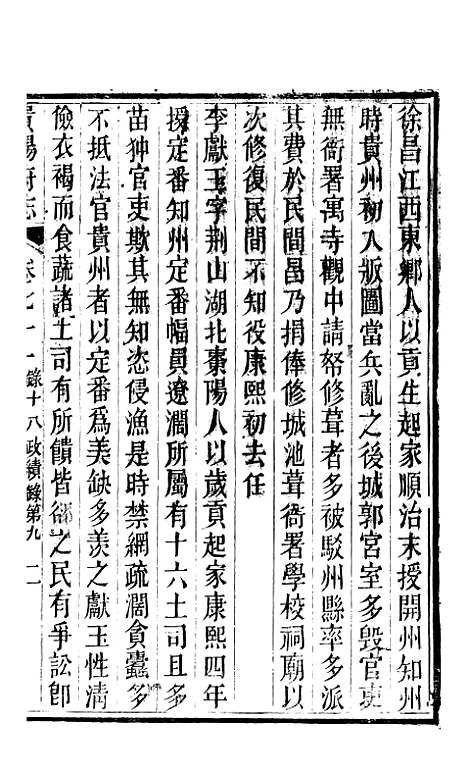 徐昌江西東鄉人以貢生起家順治末授開州知州
時貴州初入版圖當兵亂之後城郭宮室多毀官吏
無衙署寓寺觀中請帑修葺者多被駁州縣率多派
其費於民間昌乃捐俸修城池葺衙署學校祠廟以
次修復民間不知役康熙初去任
李獻玉字荆山湖北棗陽人以歲貢起家康熙四年
授定番知州定番幅員遼濶所屬有十六土司且多
苗狆官吏欺其無知恣侵漁是時禁網疏濶貪蠹多
不抵法官貴州者以定番爲美缺多羨之獻玉性淸
儉衣褐而食蔬諸土司有所饋皆卻之民有爭訟卽
貴陽府志 卷七十一 錄十八政績錄第九 二